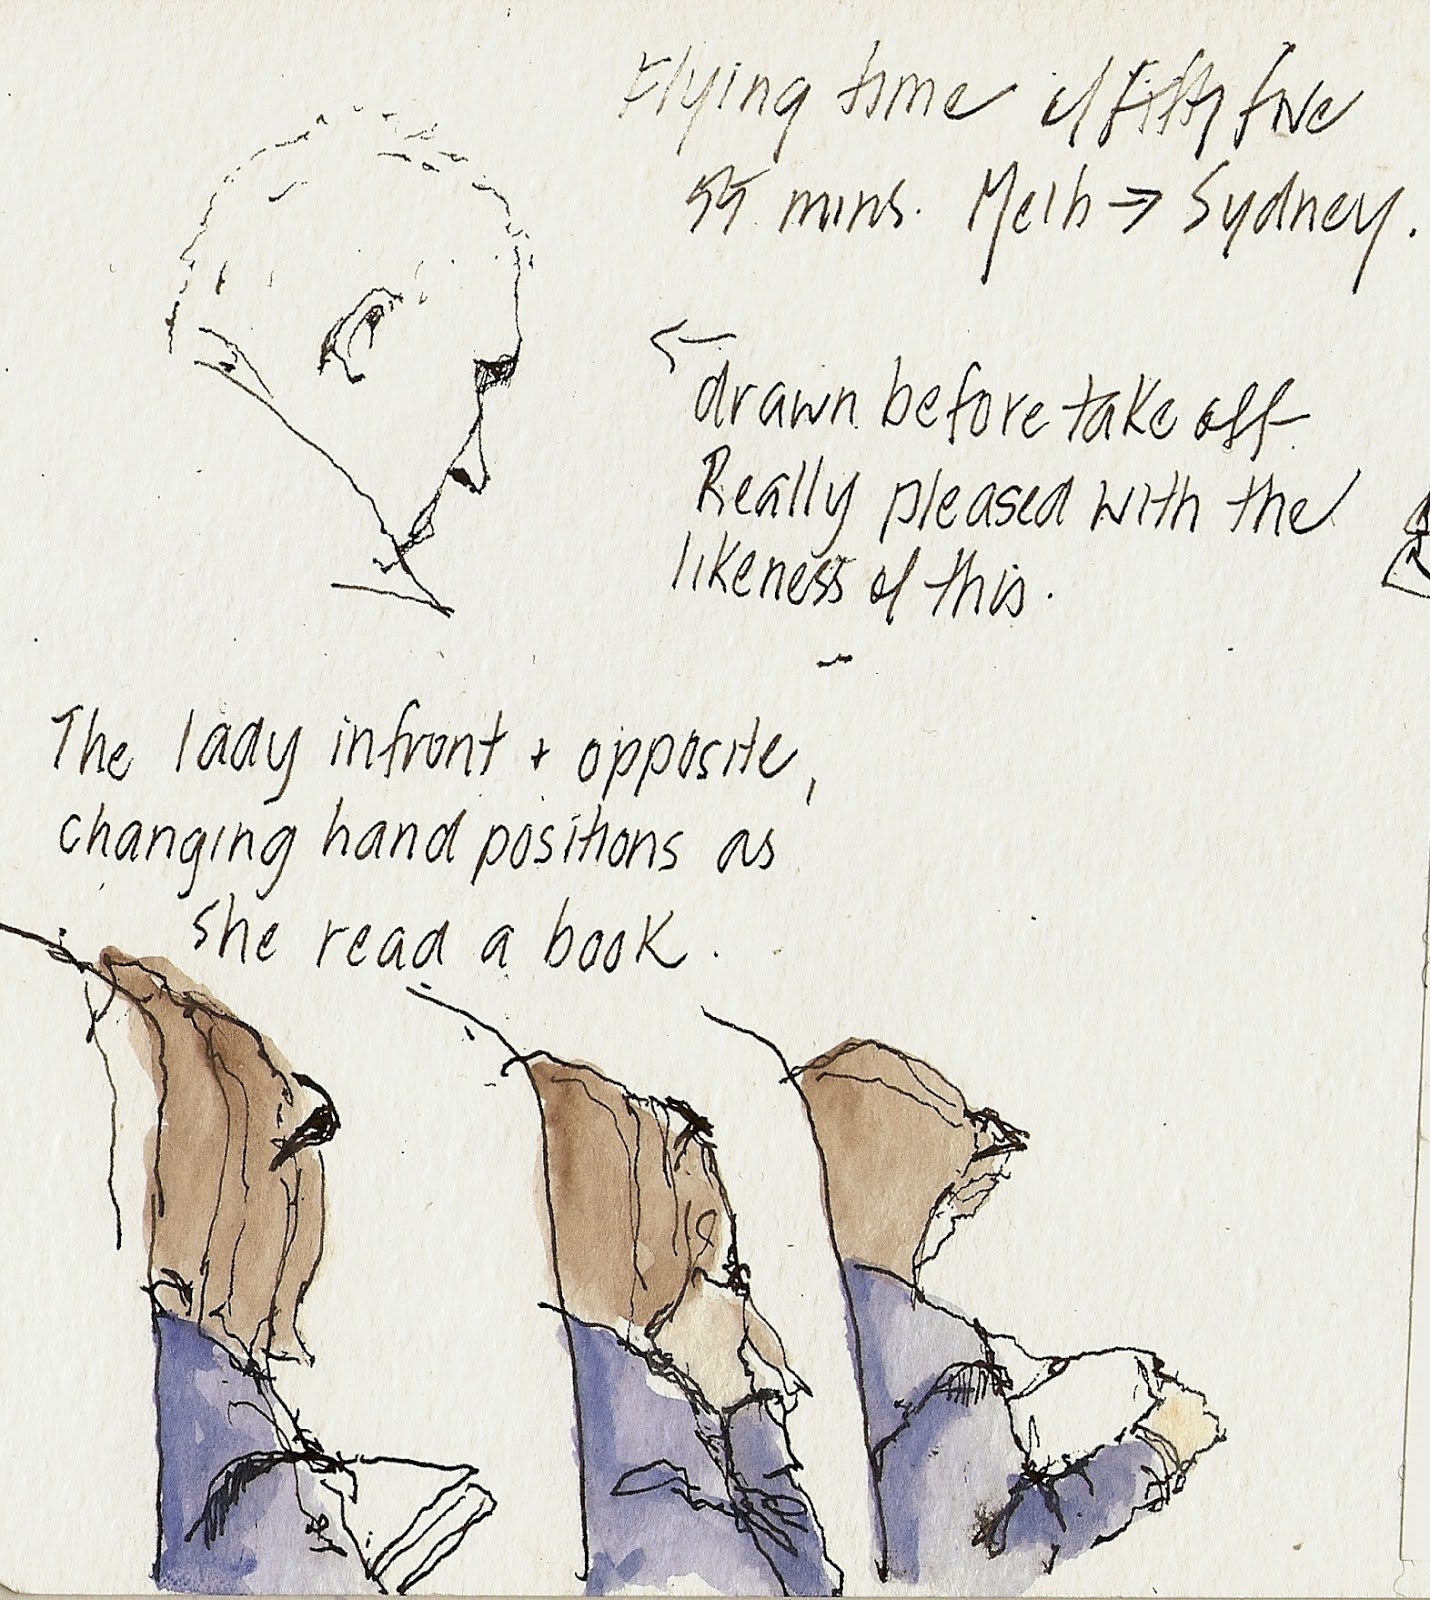 Flying time of fifty five
55 mins. Melb → Sydney.
← drawn before take off
Really pleased with the
likeness of this.
The lady infront + opposite,
changing hand positions as
she read a book.